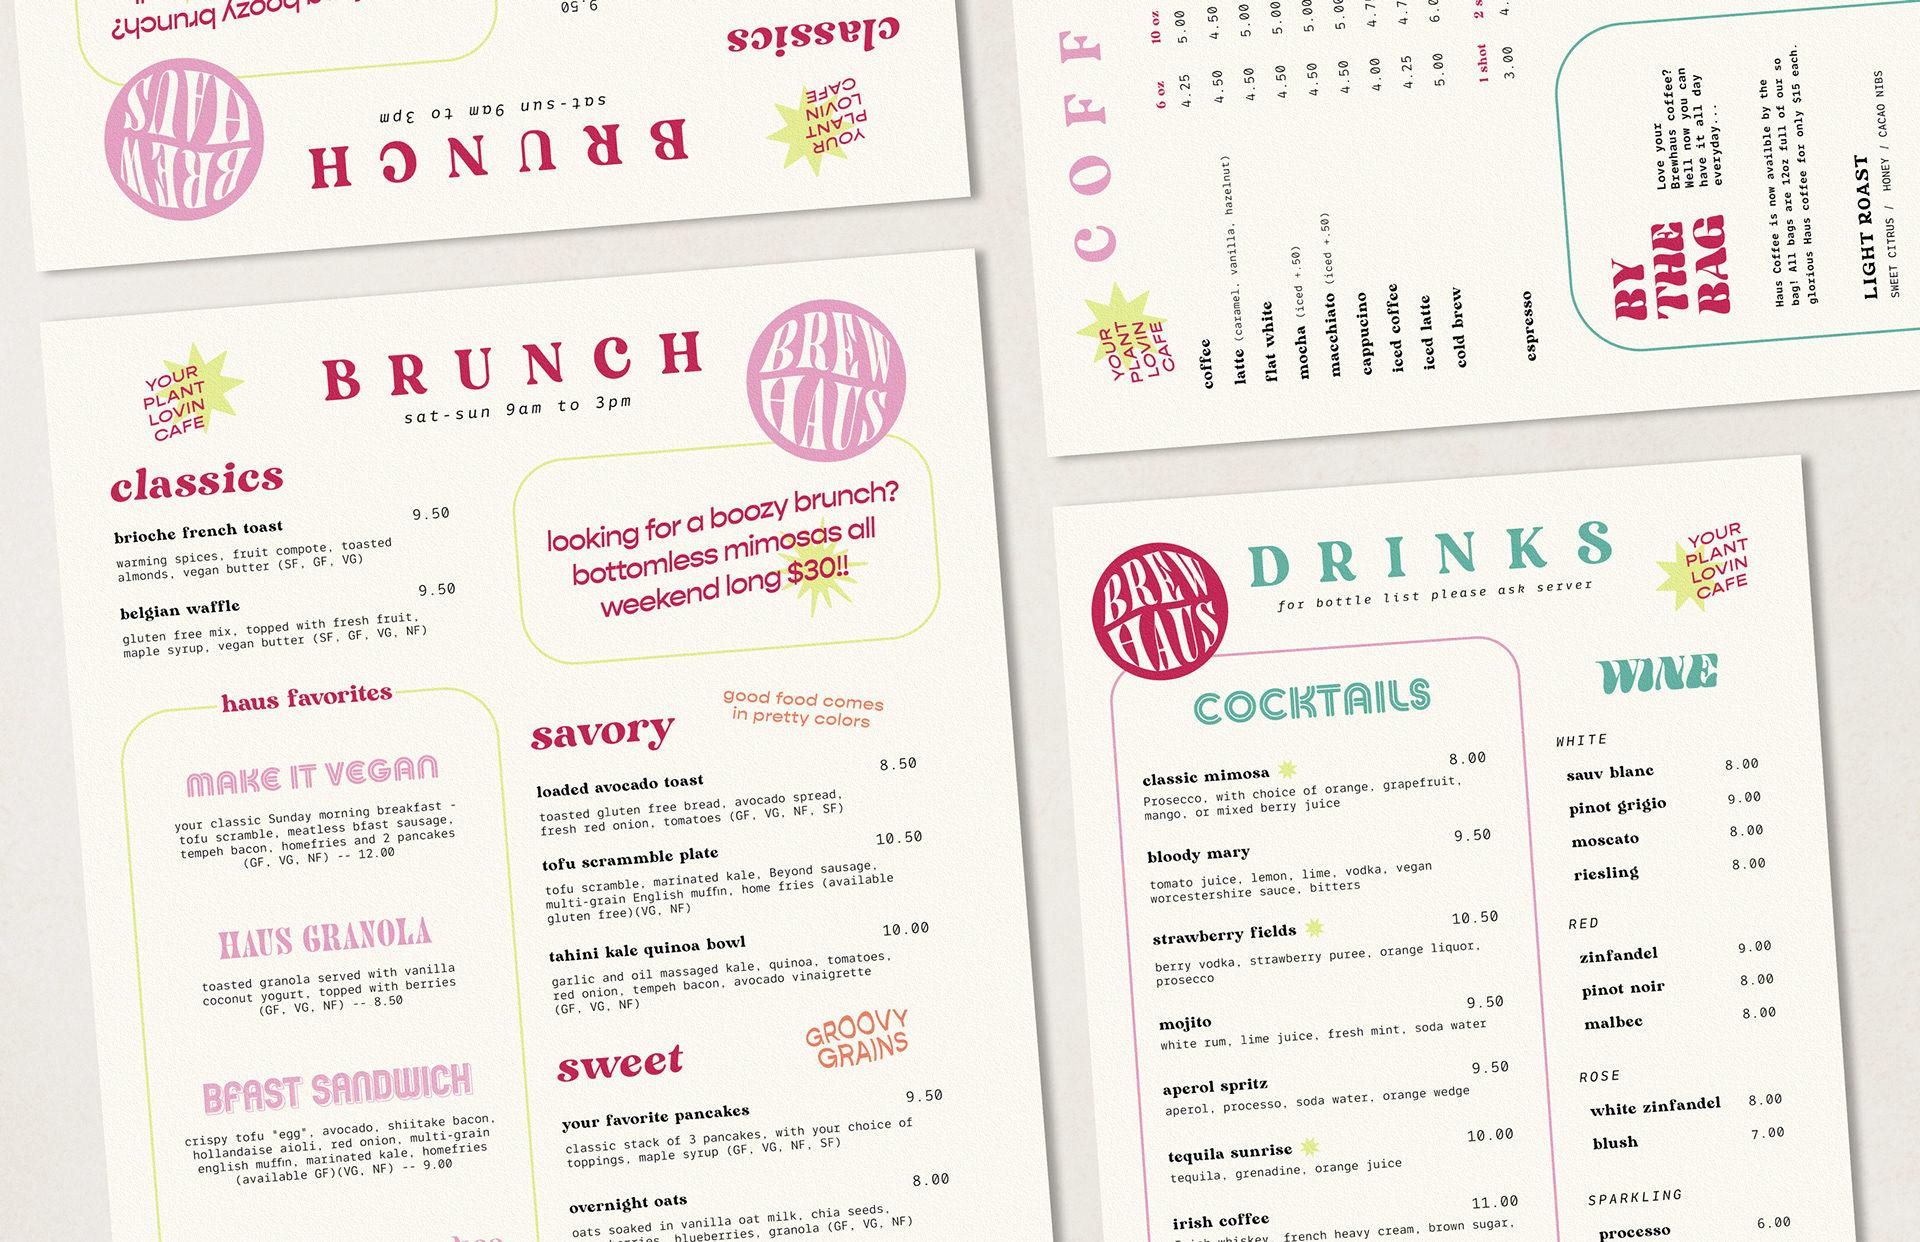 looking for a boozy brunch?
9.50
classics
BREW
HAUS
BRUNCH
sat-sun 9am to 3pm
YOUR
PLANT
LOVIN
CAFE
YOUR
PLANT
LOVIN
CAFE
BRUNCH
sat-sun 9am to 3pm
BREW
HAUS
classics
brioche french toast 9.50
warming spices, fruit compote, toasted
almonds, vegan butter (SF, GF, VG)
belgian waffle 9.50
gluten free mix, topped with fresh fruit,
maple syrup, vegan butter (SF, GF, VG, NF)
looking for a boozy brunch?
bottomless mimosas all
weekend long $30!!
haus favorites
MAKE IT VEGAN
your classic Sunday morning breakfast -
tofu scramble, meatless bfast sausage,
tempeh bacon, homefries and 2 pancakes
(GF, VG, NF) -- 12.00
HAUS GRANOLA
toasted granola served with vanilla
coconut yogurt, topped with berries
(GF, VG, NF) -- 8.50
BFAST SANDWICH
crispy tofu "egg", avocado, shiitake bacon,
hollandaise aioli, red onion, multi-grain
english muffin, marinated kale, homefries
(available GF)(VG, NF) -- 9.00
savory
good food comes
in pretty colors
loaded avocado toast 8.50
toasted gluten free bread, avocado spread,
fresh red onion, tomatoes (GF, VG, NF, SF)
tofu scrammble plate 10.50
tofu scramble, marinated kale, Beyond sausage,
multi-grain English muffin, home fries (available
gluten free)(VG, NF)
tahini kale quinoa bowl 10.00
garlic and oil massaged kale, quinoa, tomatoes,
red onion, tempeh bacon, avocado vinaigrette
(GF, VG, NF)
sweet
GROOVY
GRAINS
your favorite pancakes 9.50
classic stack of 3 pancakes, with your choice of
toppings, maple syrup (GF, VG, NF, SF)
overnight oats 8.00
oats soaked in vanilla oat milk, chia seeds,
blueberries, granola (GF, VG, NF)
YOUR
PLANT
LOVIN
CAFE
COFF
6 oz 10 oz
coffee 4.25 5.00
latte (caramel, vanilla, hazelnut) 4.50 4.50
flat white 4.50 5.00
mocha (iced +.50) 4.50 5.00
macchiato (iced +.50) 4.50 5.00
cappucino 4.50
iced coffee 4.00
iced latte 4.25
cold brew 5.00
1 shot
espresso 3.00
BY
THE
BAG
Love your
Brewhaus coffee?
Well now you can
have it all day
everyday...
Haus Coffee is now availble by the
bag! All bags are 12oz full of our so
glorious Haus coffee for only $15 each.
LIGHT ROAST
SWEET CITRUS / HONEY / CACAO NIBS
BREW
HAUS
DRINKS
for bottle list please ask server
YOUR
PLANT
LOVIN
CAFE
COCKTAILS
classic mimosa 8.00
Prosecco, with choice of orange, grapefruit,
mango, or mixed berry juice
bloody mary 9.50
tomato juice, lemon, lime, vodka, vegan
worcestershire sauce, bitters
strawberry fields 10.50
berry vodka, strawberry puree, orange liquor,
prosecco
mojito 9.50
white rum, lime juice, fresh mint, soda water
aperol spritz 9.50
aperol, processo, soda water, orange wedge
tequila sunrise 10.00
tequila, grenadine, orange juice
irish coffee 11.00
whiskey, french heavy cream, brown sugar,
WINE
WHITE
sauv blanc 8.00
pinot grigio 9.00
moscato 8.00
riesling 8.00
RED
zinfandel 9.00
pinot noir 8.00
malbec 8.00
ROSE
white zinfandel 8.00
blush 7.00
SPARKLING
processo 6.00